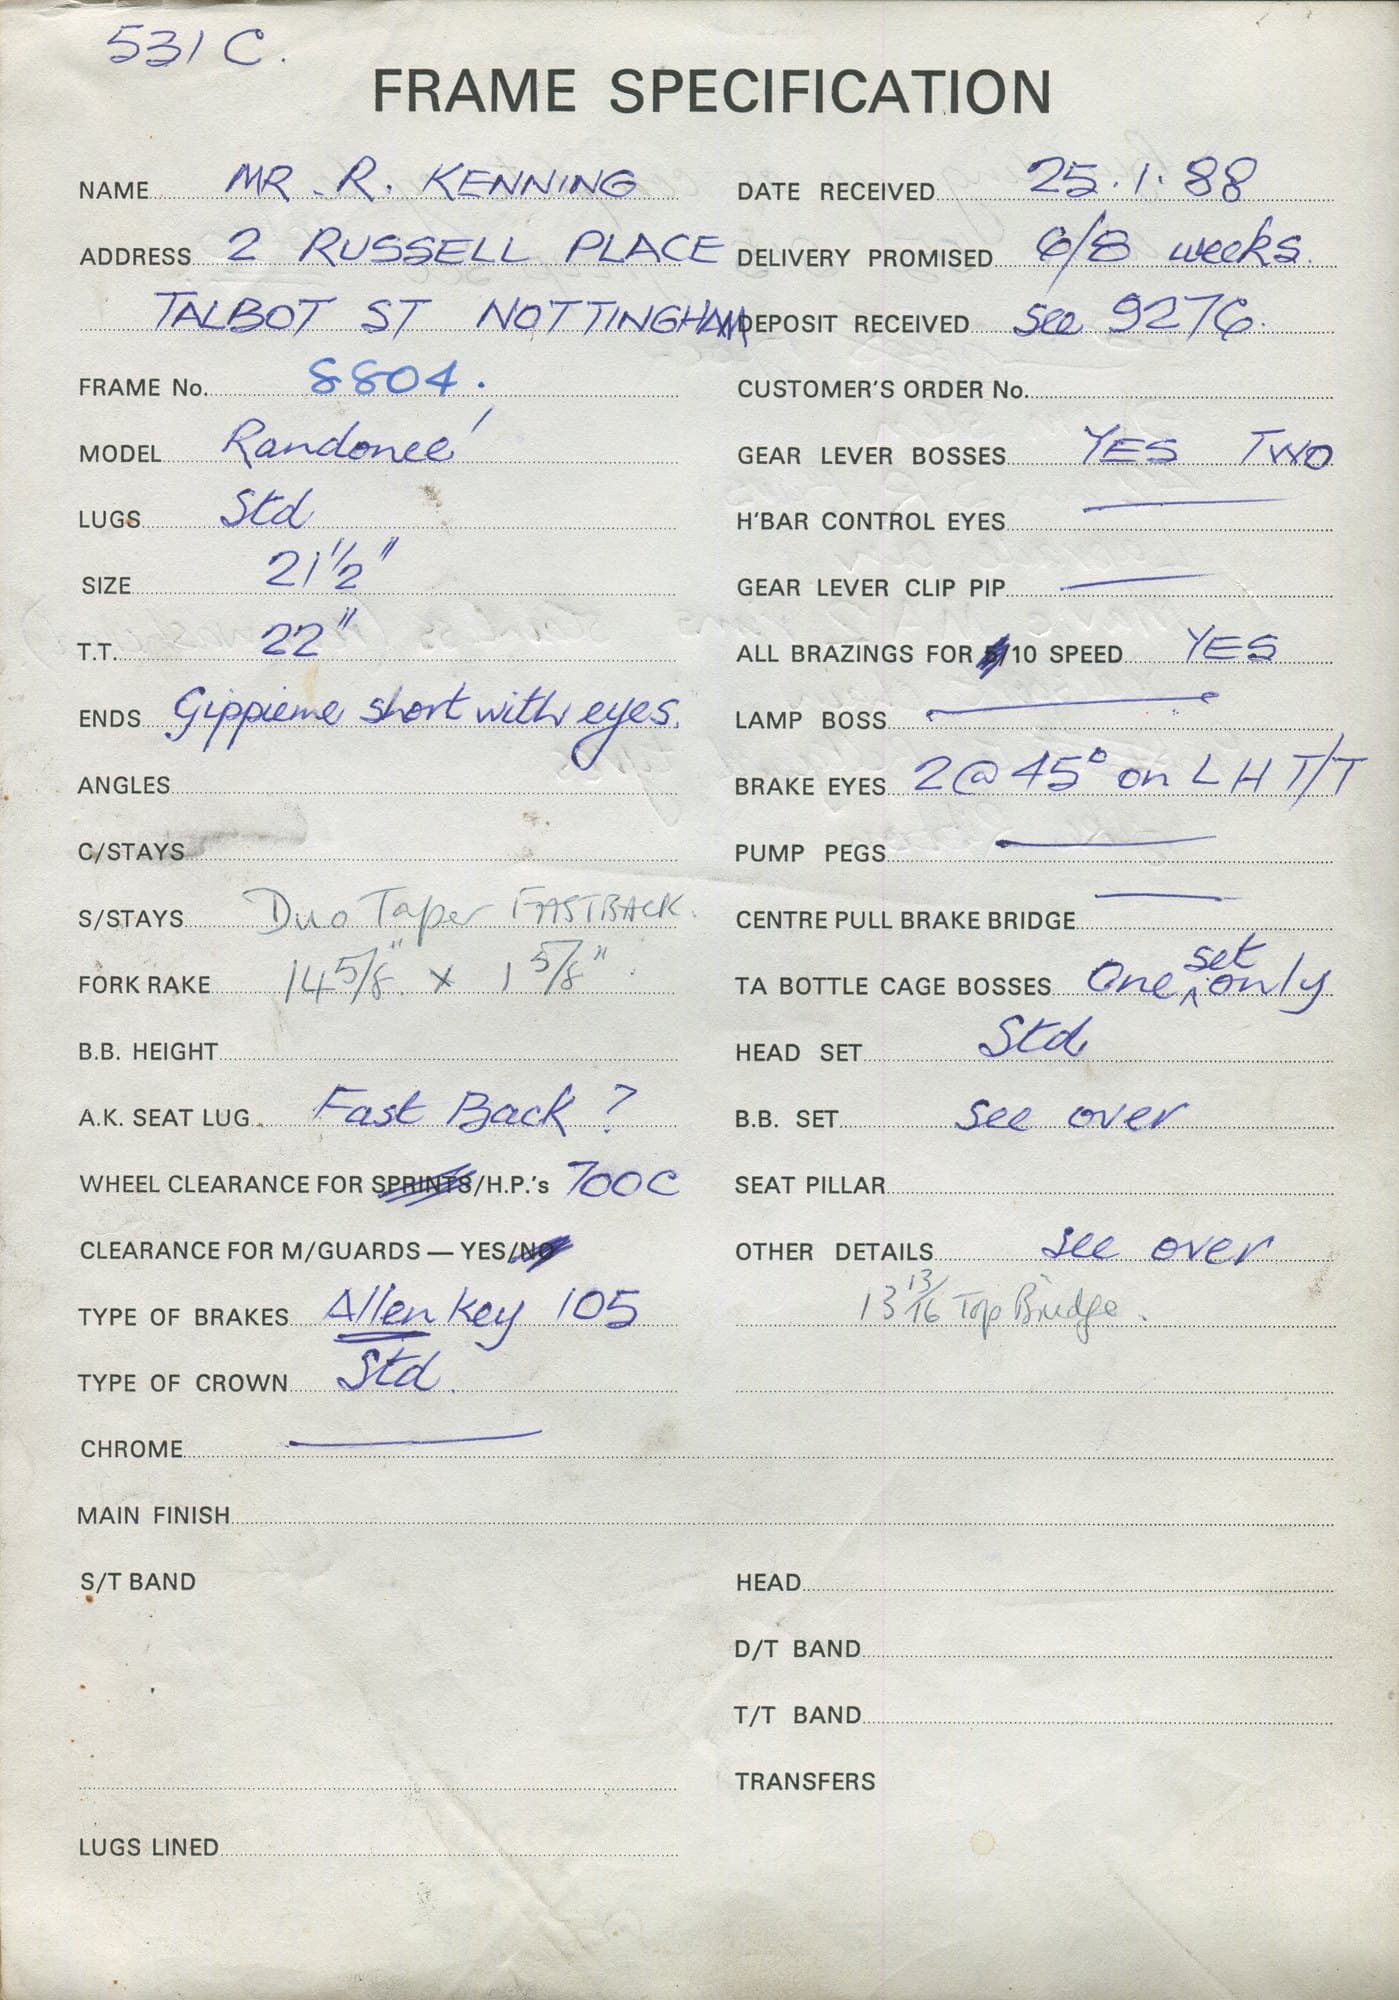 531 C.
FRAME SPECIFICATION
NAME MR. R. KENNING
ADDRESS 2 RUSSELL PLACE
TALBOT ST NOTTINGHAM
FRAME No. 8804.
MODEL Randoneé
LUGS Std
SIZE 21 1/2"
T.T. 22"
ENDS Gippieme short with eyes.
ANGLES
C/STAYS
S/STAYS Duo Taper FASTBACK.
FORK RAKE 14 5/8" x 1 5/8".
B.B. HEIGHT
A.K. SEAT LUG Fast Back ?
WHEEL CLEARANCE FOR SPRINTS/H.P.'s 700C
CLEARANCE FOR M/GUARDS — YES/NO
TYPE OF BRAKES Allen key 105
TYPE OF CROWN Std.
CHROME
MAIN FINISH
S/T BAND
LUGS LINED
DATE RECEIVED 25.1.88
DELIVERY PROMISED 6/8 weeks.
DEPOSIT RECEIVED see 9276.
CUSTOMER'S ORDER No.
GEAR LEVER BOSSES YES TWO
H'BAR CONTROL EYES
GEAR LEVER CLIP PIP
ALL BRAZINGS FOR 5/10 SPEED YES
LAMP BOSS
BRAKE EYES 2 @ 45° on L H T/T
PUMP PEGS
CENTRE PULL BRAKE BRIDGE
TA BOTTLE CAGE BOSSES One set only
HEAD SET Std
B.B. SET see over
SEAT PILLAR
OTHER DETAILS see over
13 13/16 Top Bridge.
HEAD
D/T BAND
T/T BAND
TRANSFERS